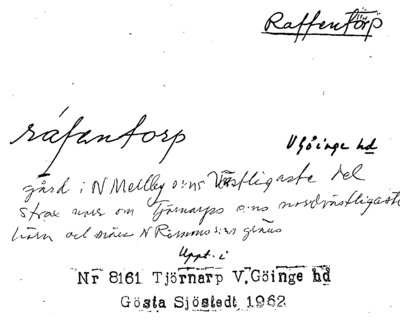 Raffentorp
ráfantorp
V Göinge hd
gård i N Mellby s:ns västligaste del
strax norr om Tjörnarps s:ns nordvästligaste
hörn och nära N Rörums s:ns gräns
Uppt. i
Nr 8161 Tjörnarp V.Göinge hd
Gösta Sjöstedt 1962